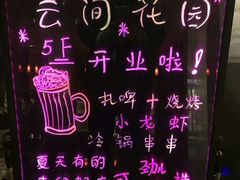 云间花园
5F 开业啦！
扎啤+烧烤
小龙虾
冷锅串串
夏天有的
劲